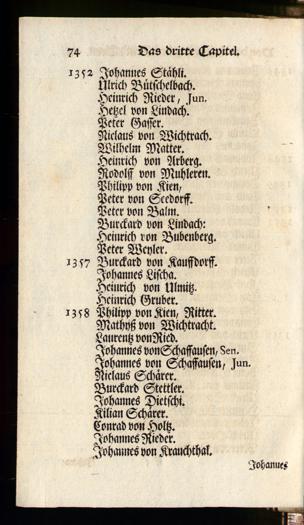 74 Das dritte Capitel.
1352 Johannes Stähli.
Ulrich Bütschelbach.
Heinrich Rieder, Jun.
Hetzel von Lindach.
Peter Gasser.
Niclaus von Wichtrach.
Wilhelm Matter.
Heinrich von Arberg.
Rodolff von Muhleren.
Philipp von Kien,
Peter von Seedorff.
Peter von Balm.
Burckard von Lindach:
Heinrich von Bubenberg.
Peter Weyler.
1357 Burckard von Kauffdorff.
Johannes Lischa.
Heinrich von Ulmitz.
Heinrich Gruber.
1358 Philipp von Kien, Ritter.
Mathyß von Wichtracht.
Laurentz von Ried.
Johannes von Schaffausen, Sen.
Johannes von Schaffausen, Jun.
Niclaus Schärer.
Burckard Stettler.
Johannes Dietschi.
Kilian Schärer.
Conrad von Holtz.
Johannes Rieder.
Johannes von Krauchthal.
Johannes